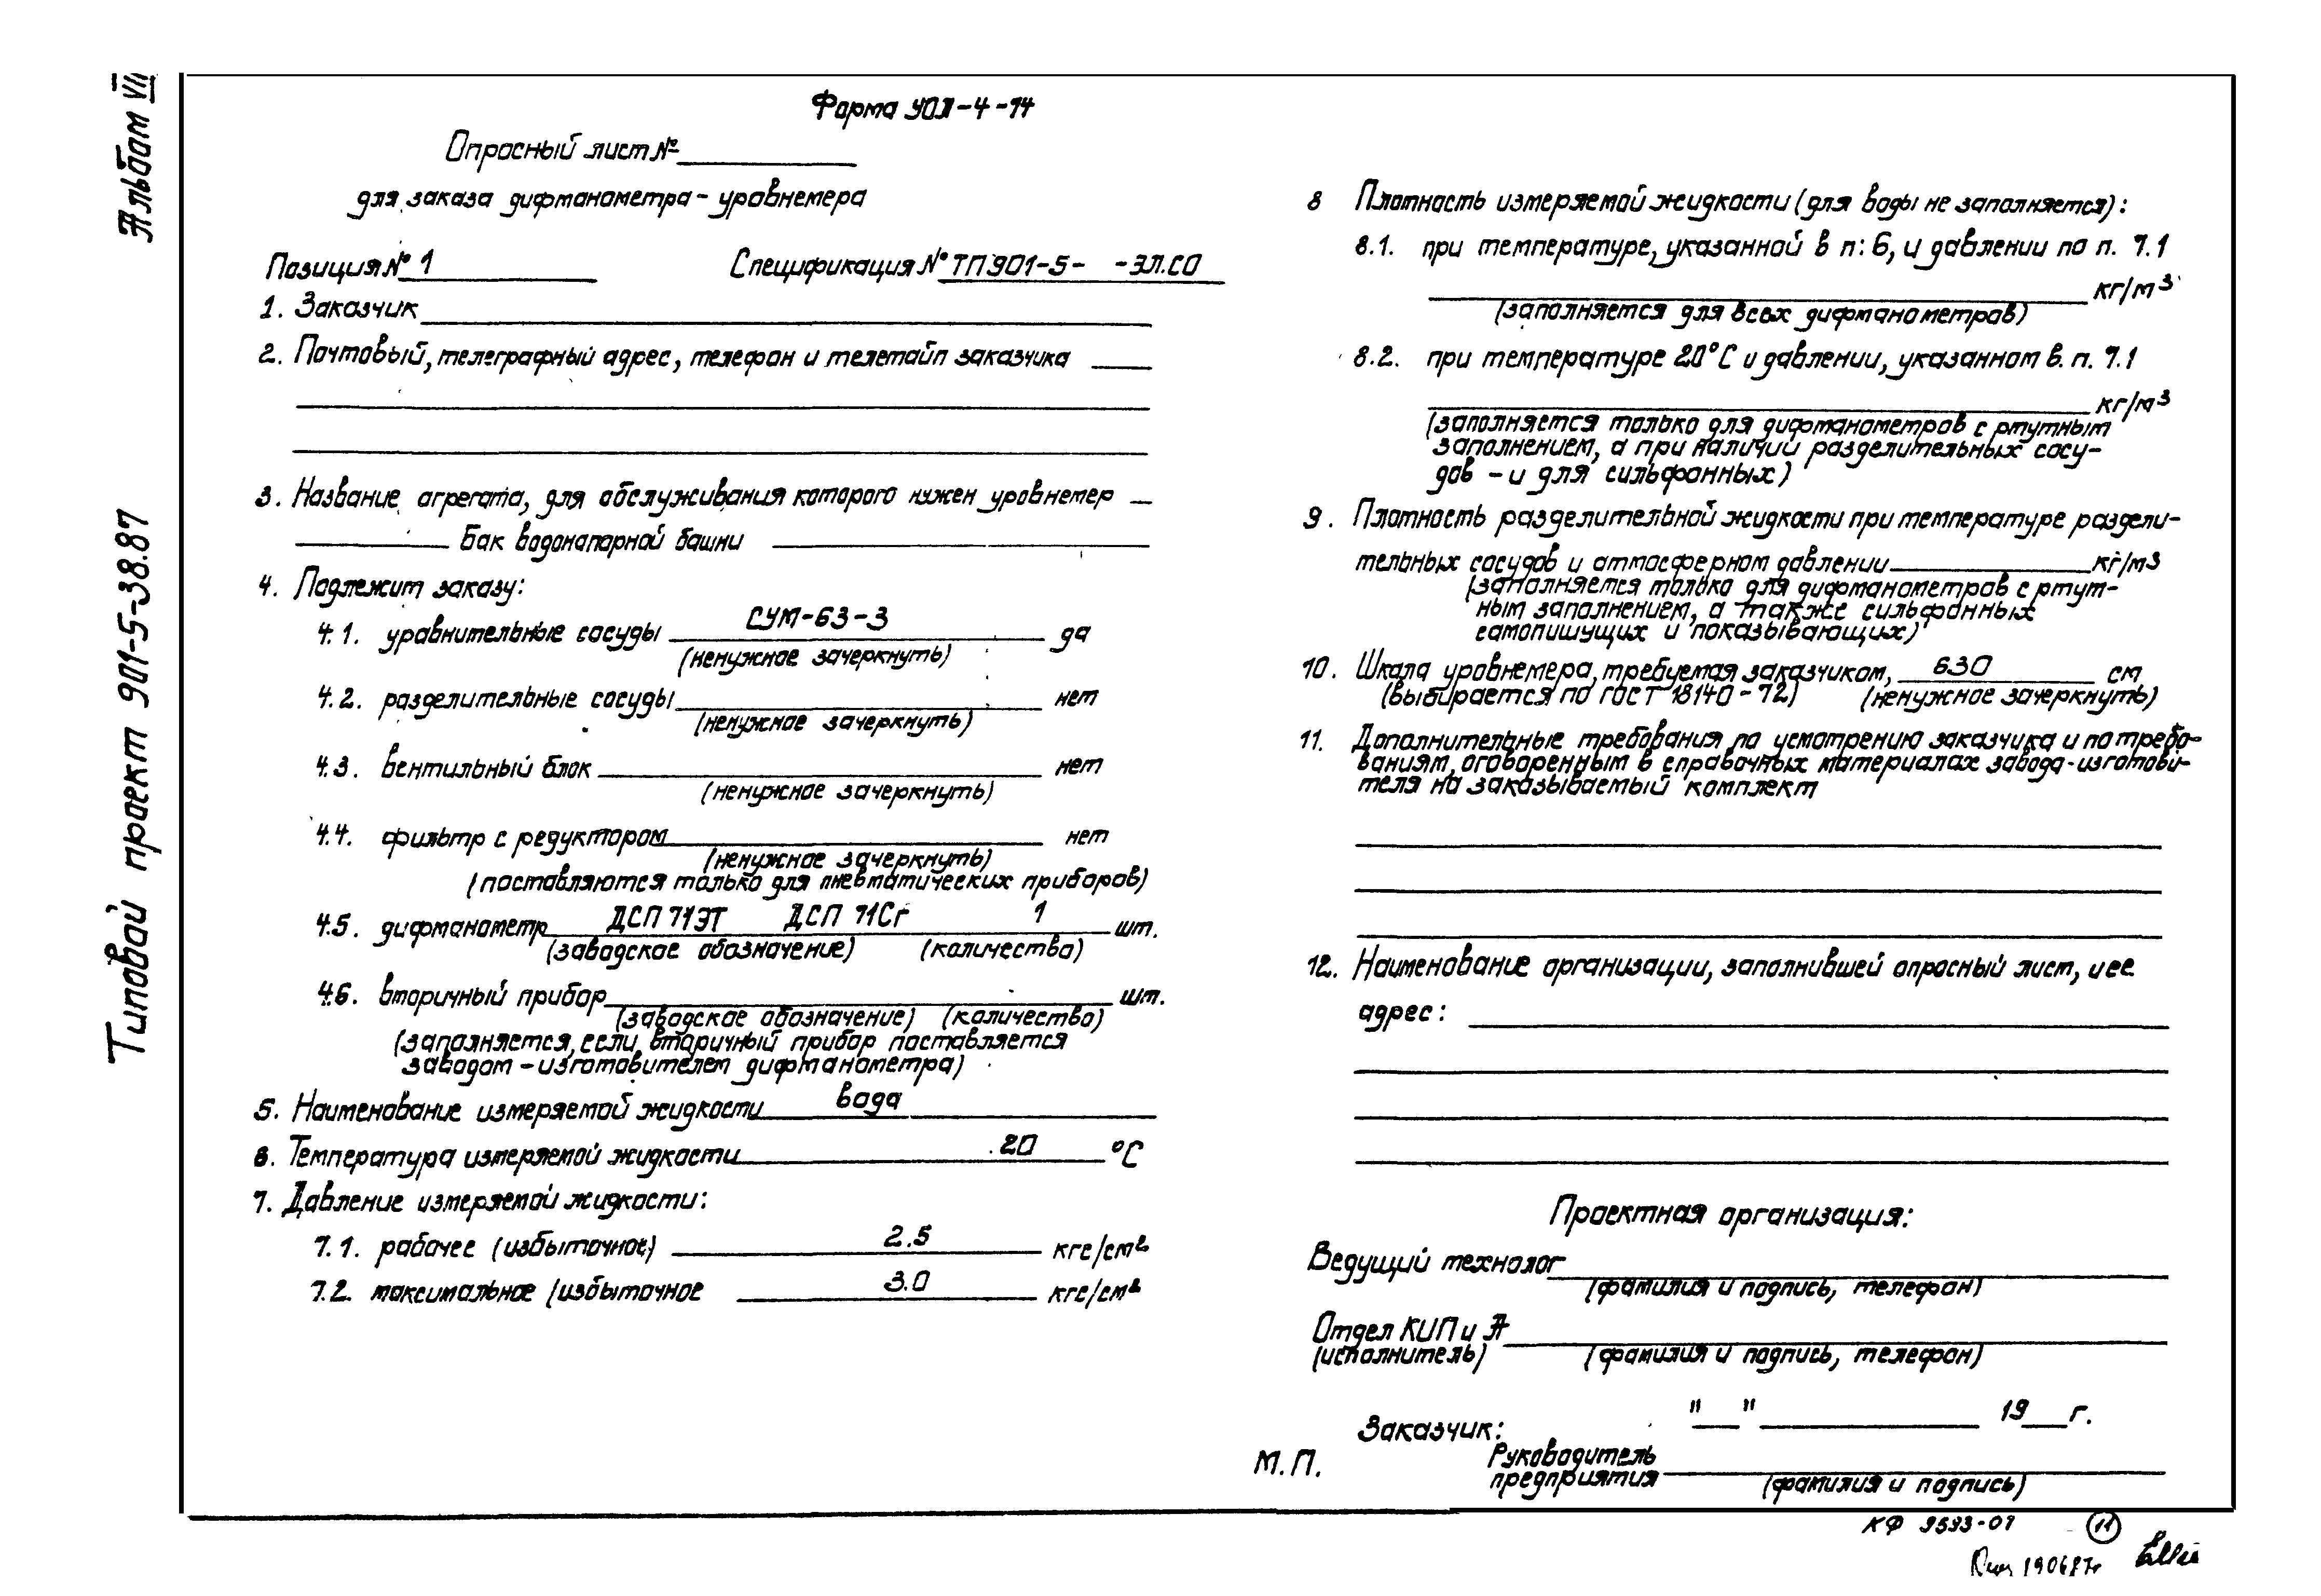 Альбом VII
Типовой проект 901-5-38.87
Форма УОЛ-4-74
Опросный лист №
для заказа дифманометра - уровнемера
Позиция № 1 Спецификация № ТП901-5- -ЭЛ.СО
1. Заказчик
2. Почтовый, телеграфный адрес, телефон и телетайп заказчика
3. Название агрегата, для обслуживания которого нужен уровнемер
Бак водонапорной башни
4. Подлежит заказу:
4.1. уравнительные сосуды СУМ-63-3 да
(ненужное зачеркнуть)
4.2. разделительные сосуды нет
(ненужное зачеркнуть)
4.3. вентильный блок нет
(ненужное зачеркнуть)
4.4. фильтр с редуктором нет
(ненужное зачеркнуть)
(поставляются только для пневматических приборов)
4.5. дифманометр ДСП 71ЭТ ДСП 71Сг 1 шт.
(заводское обозначение) (количество)
4.6. вторичный прибор шт.
(заводское обозначение) (количество)
(заполняется, если вторичный прибор поставляется
заводом - изготовителем дифманометра)
5. Наименование измеряемой жидкости вода
6. Температура измеряемой жидкости 20 °С
7. Давление измеряемой жидкости:
7.1. рабочее (избыточное) 2.5 кгс/см²
7.2. максимальное (избыточное 3.0 кгс/см²
8 Плотность измеряемой жидкости (для воды не заполняется):
8.1. при температуре, указанной в п: 6, и давлении по п. 7.1
кг/м³
(заполняется для всех дифманометров)
8.2. при температуре 20°С и давлении, указанном в. п. 7.1
кг/м³
(заполняется только для дифманометров с ртутным
заполнением, а при наличии разделительных сосу-
дов - и для сильфонных)
9. Плотность разделительной жидкости при температуре раздели-
тельных сосудов и атмосферном давлении кг/м3
(заполняется только для дифманометров с ртут-
ным заполнением, а также сильфонных
самопишущих и показывающих)
10. Шкала уровнемера, требуемая заказчиком, 630 см
(выбирается по ГОСТ 18140-72) (ненужное зачеркнуть)
11. Дополнительные требования по усмотрению заказчика и по требо-
ваниям, оговоренным в справочных материалах завода-изготови-
теля на заказываемый комплект
12. Наименование организации, заполнившей опросный лист, и ее
адрес:
Проектная организация:
Ведущий технолог
(фамилия и подпись, телефон)
Отдел КИП и А
(исполнитель) (фамилия и подпись, телефон)
" " 19 г.
Заказчик:
М.П. Руководитель
предприятия
(фамилия и подпись)
КФ 9593-07 11
190687г